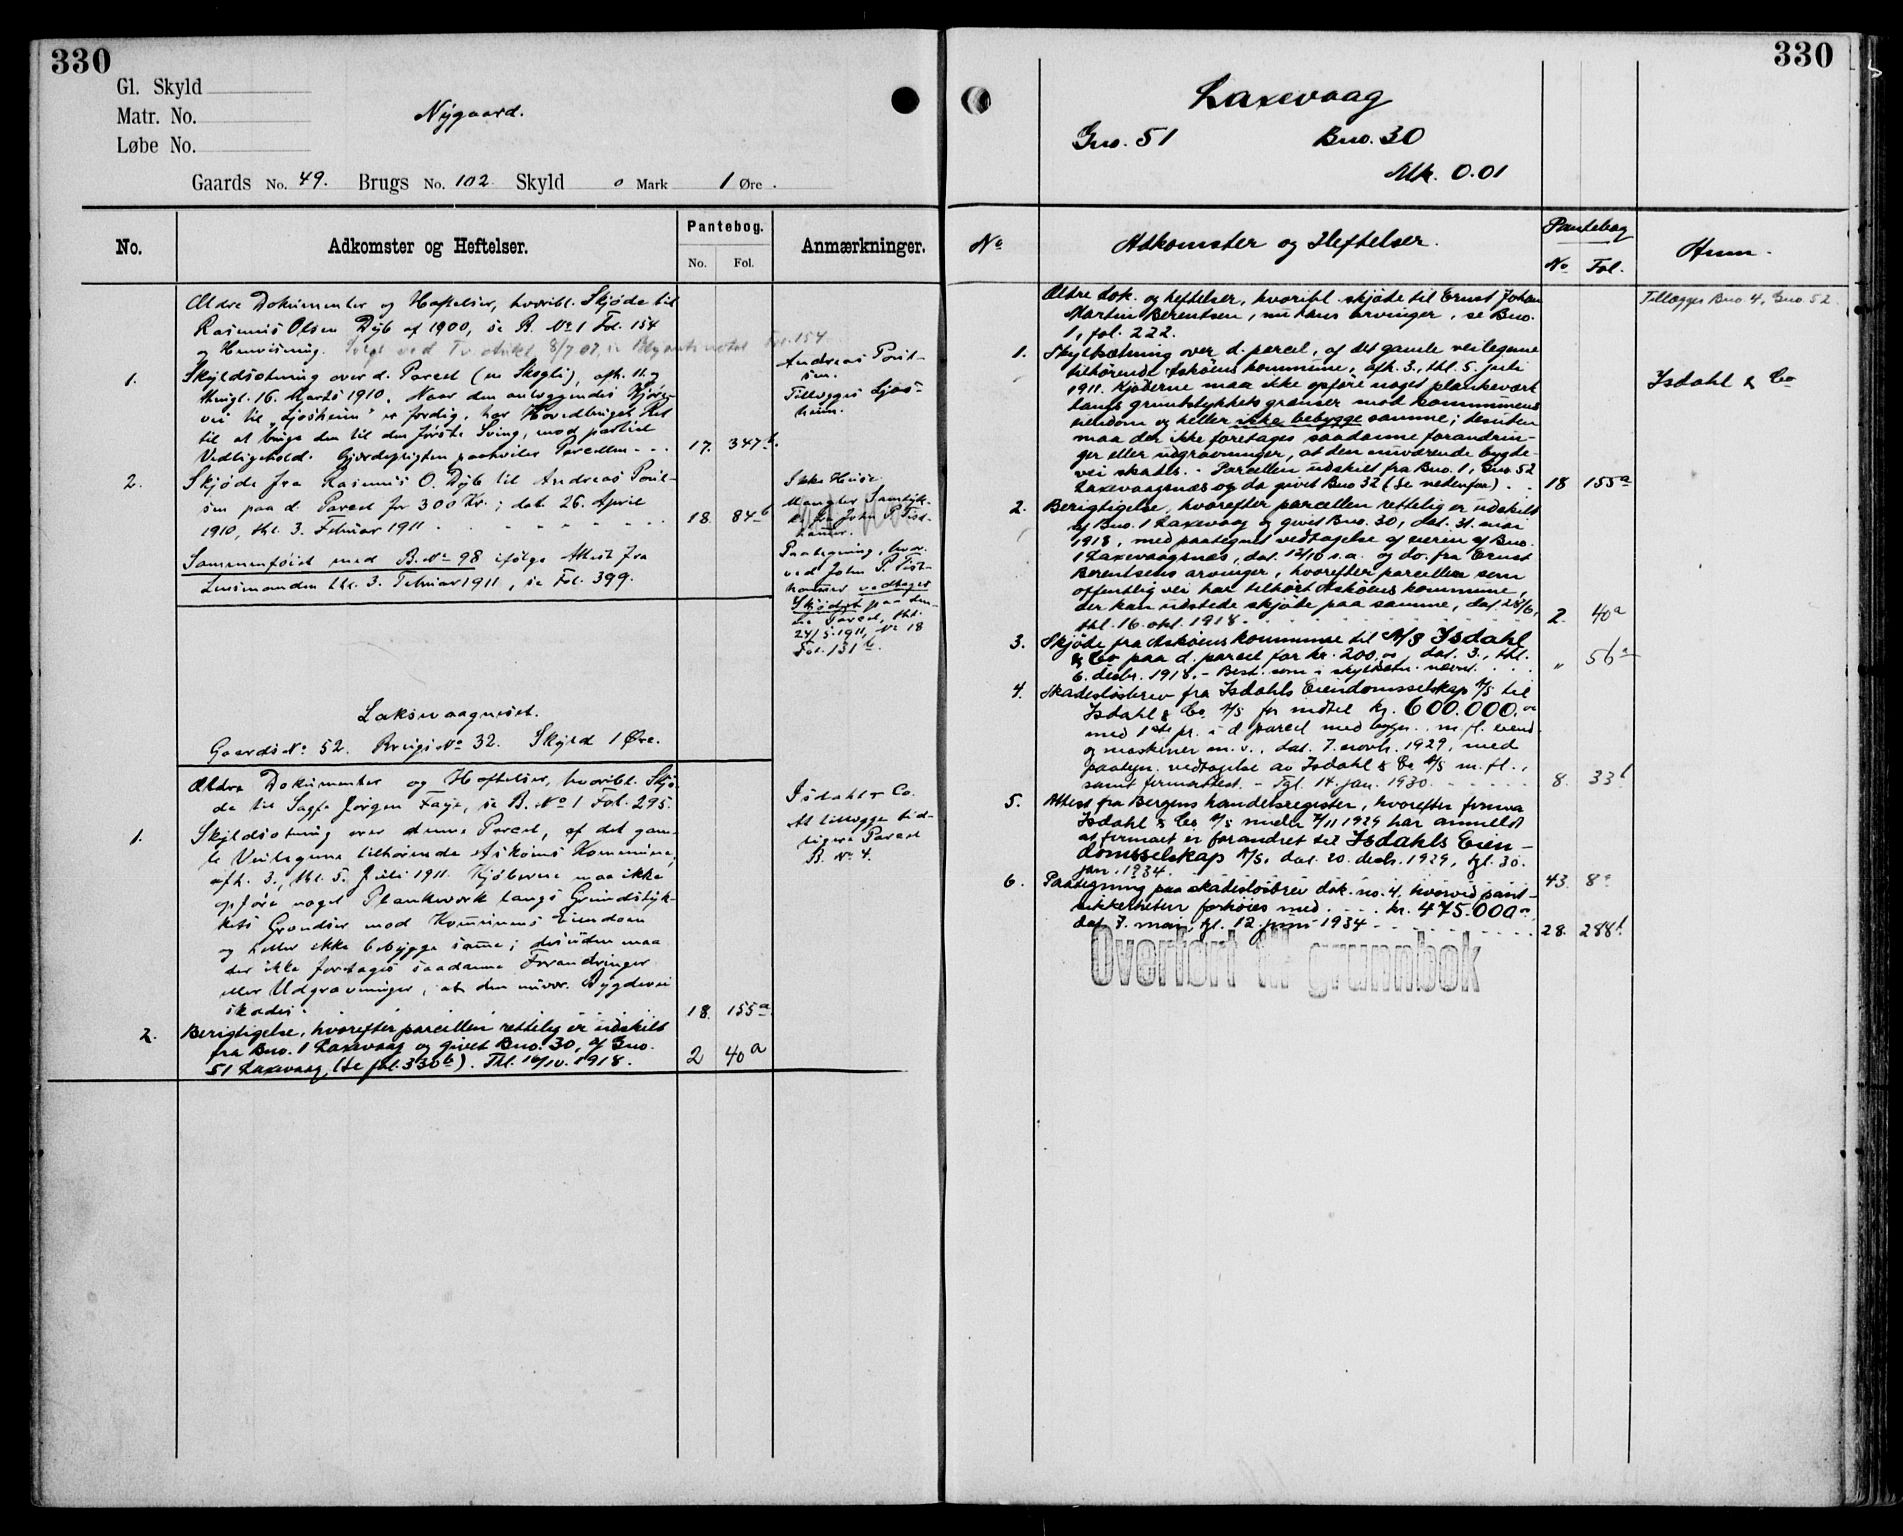 330
Gl. Skyld
Matr. No.
Løbe No.
Nygaard.
Gaards No. 49. Brugs No. 102 Skyld 0 Mark 1 Øre.
No. Adkomster og Heftelser. Pantebog. Anmærkninger.
No. Fol.
Ældre Dokumenter og Heftelser, hvoribl. Skjøde til
Rasmus Olsen Dyb af 1900, se B. No 1 Fol. 154
og Henvisning.
1. Skyldsætning over d. Parcel (nu Skogli), afh. 11. og
thingl. 16. Marts 1910. Naar den anlæggendes Kjøre-
vei til "Ljosheim" er færdig, har Hovedbruget Ret
til at bruge den til den første Sving, mod partiel
Vedligehold. Gjærdepligten paahviler Parcellen - - - 17. 347b.
Andreas Poul-
sen.
Tillægges Ljos-
heim.
2. Skjøde fra Rasmus O. Dyb til Andreas Poul-
sen paa d. Parcel for 300 Kr.; dat. 26. April
1910, thl. 3. Februar 1911 - - - - - 18. 84b
Sammenføiet med B. No 98 ifølge Attest fra
Lensmanden thl. 3. Februar 1911, se Fol. 399.
Ikke Huse.
Mangler Samtyk-
ke fra John P. Tist-
hamer.
Paategning, hvor-
ved John P. Tist-
hammer vedtager
Skjødet paa den-
ne Parcel, thl.
24/5.1911, No 18
Fol. 131b.
Laksevaagneset.
Gaards No 52. Brugs No 32. Skyld 1 Øre.
Ældre Dokumenter og Heftelser, hvoribl. Skjø-
de til Sagf. Jørgen Faye, se B. No 1 Fol. 295.
1. Skyldsætning over denne Parcel, af det gam-
le Veilegeme tilhørende Askøens Kommune,
afh. 3., thl. 5. Juli 1911. Kjøberne maa ikke
opføre noget Plankeværk langs Grundstyk-
kets Grændser mod Kommunens Eiendom
og heller ikke bebygge samme; desuden maa
der ikke foretages saadanne Forandringer
eller Udgravninger, at den nuvær. Bygdevei
skades. 18. 155a
Isdahl & Co.
At tillægge tid-
ligere Parcel
B. No 4.
2. Berigtigelse, hvorefter parcellen rettelig er udskilt
fra Bno. 1 Laxevaag og givet Bno. 30, af Gno.
51 Laxevaag, (Se fol. 330b). Thl. 16/10. 1918. 2 40a
330
Laxevaag
Gno. 51 Bno. 30
Mk. 0.01
No Adkomster og Heftelser. Pantebog Anm.
No Fol.
Ældre dok. og heftelser, hvoribl. skjøde til Ernst Johan
Martin Berentsen, nu hans arvinger, se Bno.
1, fol. 222.
Tillægges Bno. 4, Gno. 52.
1. Skyldsætning over d. parcel, af det gamle veilegeme
tilhørende Askøens kommune, afh. 3., thl. 5. juli
1911. Kjøberne maa ikke opføre noget plankeværk
langs grundstykkets grænser mod kommunens
eiendom og heller ikke bebygge samme; desuten
maa der ikke foretages saadanne forandrin-
ger eller udgravninger, at den nuværende bygde-
vei skades. - Parcellen udskilt fra Bno. 1, Gno. 52
Laxevaagsnæs og da givet Bno 32 (Se nedenfor) . . 18 155a
Isdahl & Co
2. Berigtigelse, hvorefter parcellen rettelig er udskilt
af Bno. 1 Laxevaag og givet Bno. 30, dat. 31. mai
1918, med paategnet vedtagelse af eieren af Bno.
1 Laxevaagsnæs, dat. 12/10 s.a. og do. fra Ernst
Berentsens arvinger, hvorefter parcellen som
offentlig vei har tilhørt Askøens kommune,
der kan udstede skjøde paa samme, dat. 28/6,
thl. 16. okt. 1918 - - - - 2. 40a
3. Skjøde fra Askøens kommune til A/S Isdahl
& Co paa d. parcel for kr. 200,00, dat. 3., thl.
6. desbr. 1918. - Best. som i skyldsætn. nævnt. . . . " 56a
4. Skadesløsbrev fra Isdahls Eiendomsselskap A/S til
Isdahl & Co A/S for indtil kr. 600.000,00
med 1ste pr. i d parcel med bygn. m fl. eiend.
og maskiner m. v., dat. 7. novbr. 1929, med
paategn. vedtagelse av Isdahl & Co A/S m. fl.,
samt firmattest. - Tgl. 14. jan. 1930 - - - - - 8. 33b
5. Attest fra Bergens handelsregister, hvorefter firma
Isdahl & Co A/S under 7/11 1929 har anmeldt
at firmaet er forandret til Isdahls Eien-
domsselskap A/S, dat. 20. desbr. 1929, tgl. 30.
jan. 1934 . . . . 43. 8a
6. Paategning paa skadesløsbrev dok. no. 4, hvorved pant-
sikkerheten forhøies med . . . . kr. 475.000,00
dat. 7. mai, tgl. 12. juni 1934 - - - - - 28. 288b
Overført til grunnbok